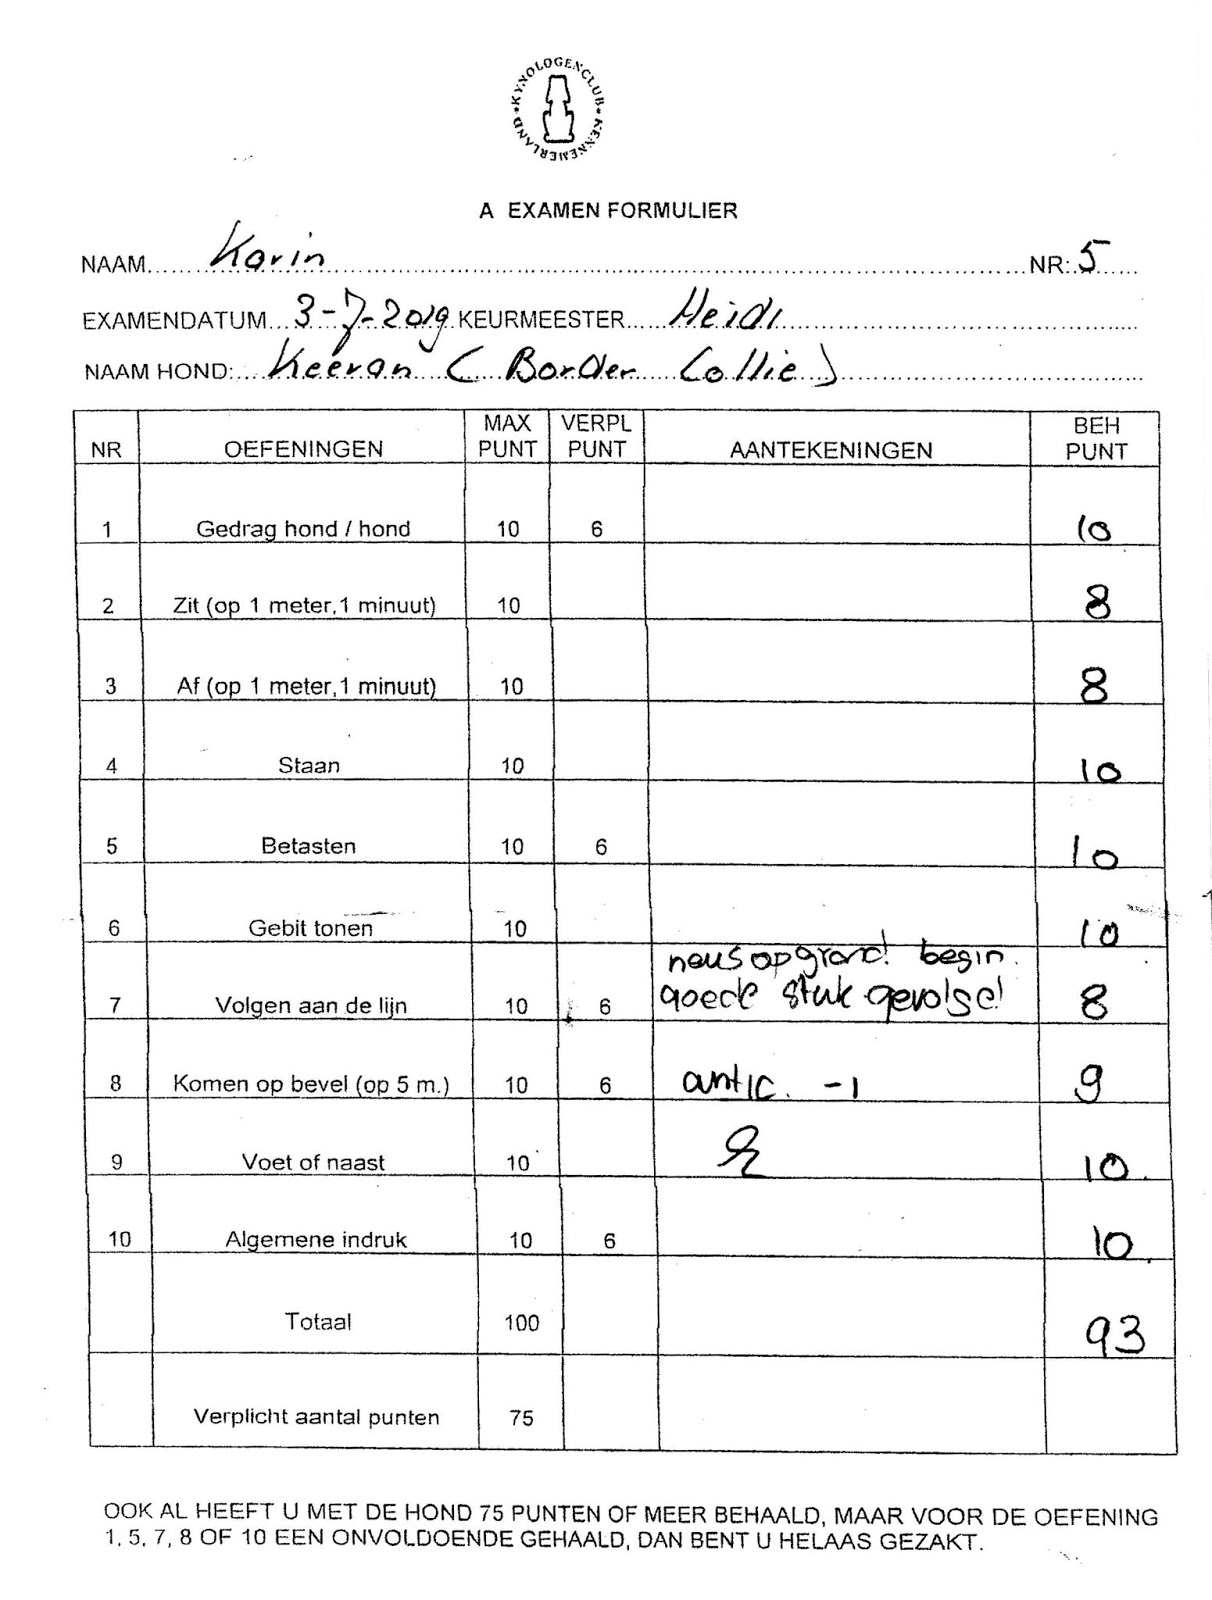 KYNOLOGENCLUB * KENNEMERLAND *
A EXAMEN FORMULIER
NAAM Karin NR: 5
EXAMENDATUM 3-7-2019 KEURMEESTER Heidi
NAAM HOND: Keeran (Border Collie)
NR OEFENINGEN MAX PUNT VERPL PUNT AANTEKENINGEN BEH PUNT
1 Gedrag hond / hond 10 6 10
2 Zit (op 1 meter, 1 minuut) 10 8
3 Af (op 1 meter, 1 minuut) 10 8
4 Staan 10 10
5 Betasten 10 6 10
6 Gebit tonen 10 10
neus op grond! begin
7 Volgen aan de lijn 10 6 goede stuk gevolgd 8
8 Komen op bevel (op 5 m.) 10 6 antic. -1 9
9 Voet of naast 10 10
10 Algemene indruk 10 6 10
Totaal 100 93
Verplicht aantal punten 75
OOK AL HEEFT U MET DE HOND 75 PUNTEN OF MEER BEHAALD, MAAR VOOR DE OEFENING
1, 5, 7, 8 OF 10 EEN ONVOLDOENDE GEHAALD, DAN BENT U HELAAS GEZAKT.